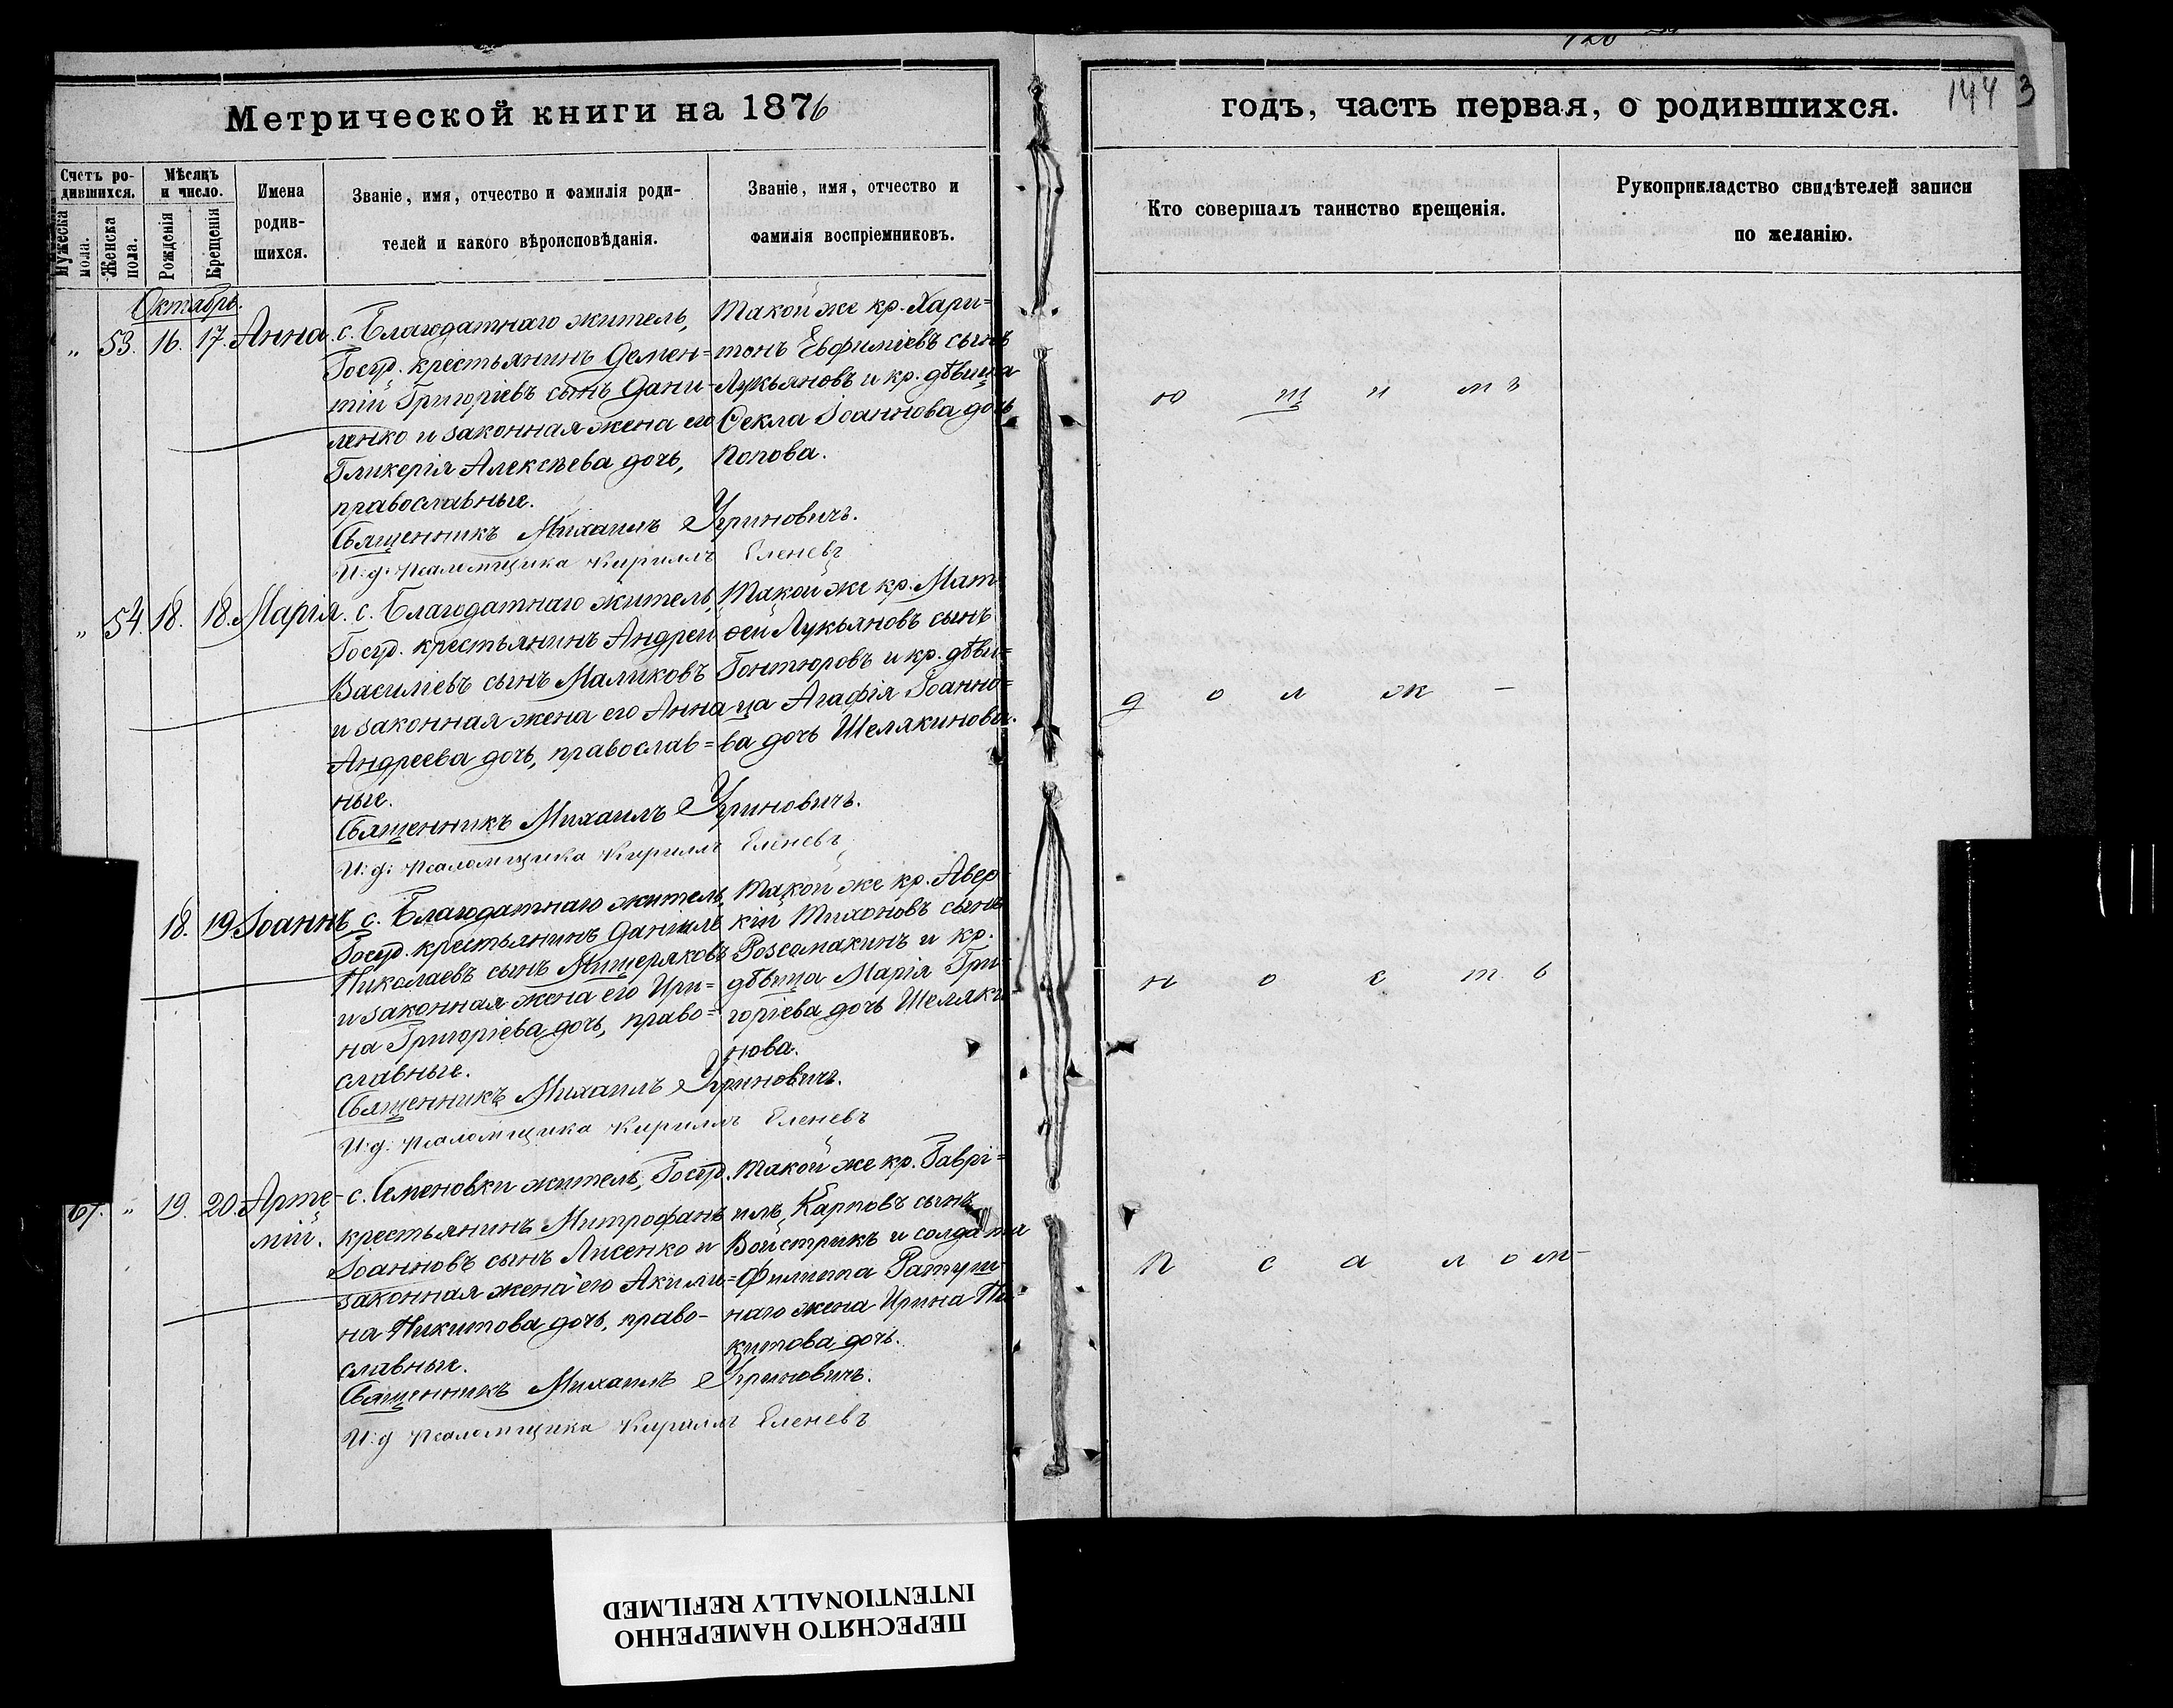 Метрической книги на 1876
Счетъ ро-
дившихся.
Мужеска
пола.
Женска
пола.
Мѣсяцъ
и число.
Рожденія
Крещенія
Имена
родив-
шихся.
Званіе, имя, отчество и фамилія роди-
телей и какого вѣроисповѣданія.
Званіе, имя, отчество и
фамилія воспріемниковъ.
Октябрь.
„ 53. 16. 17. Анна
с. Благодатнаго житель,
Госуд. крестьянинъ Демен=
тій Григоріевъ сынъ Дани-
ленко и законная жена его
Гликерія Алексѣева дочь,
православные.
Такой же кр. Хари=
тонъ Евфиміевъ сынъ
Лукьяновъ и кр. дѣвица
Ѳекла Іоаннова дочь
Попова.
Священникъ Михаилъ Угриновичъ.
И. д. псаломщика Кириллъ Еленевъ
„ 54. 18. 18. Марія.
с. Благодатнаго житель,
Госуд. крестьянинъ Андрей
Василіевъ сынъ Маликовъ
и законная жена его Анна
Андреева дочь, православ=
ные.
Такой же кр. Мат-
ѳей Лукьяновъ сынъ
Гонтюровъ и кр. дѣви=
ца Агафія Іоанно=
ва дочь Шелякинова.
Священникъ Михаилъ Угриновичъ.
И: д: псаломщика Кириллъ Еленевъ
18. 19 Іоаннъ
с. Благодатнаго житель,
Госуд. крестьянинъ Даніилъ
Николаевъ сынъ Мищеряковъ
и законная жена его Ири=
на Григоріева дочь, право=
славные.
Такой же кр. Авер
кій Тихоновъ сынъ
Розсамахинъ и кр.
дѣвица Марія Гри-
горіева дочь Шеляки-
нова.
Священникъ Михаилъ Угриновичъ.
И: д: псаломщика Кириллъ Еленевъ
67. „ 19. 20. Арте-
мій.
с. Семеновки житель, Госуд.
крестьянинъ Митрофанъ
Іоанновъ сынъ Лисенко и
законная жена его Акили=
на Никитова дочь, право-
славные.
Такой же кр. Гаврі=
илъ Карповъ сынъ
Войстрикъ и солдата
Филиппа Ратуш-
наго жена Ирина Ни-
китова дочь.
Священникъ Михаилъ Угриновичъ.
И: д псаломщика Кириллъ Еленевъ
годъ, часть первая, о родившихся.
144 3
Кто совершалъ таинство крещенія.
Рукоприкладство свидѣтелей записи
по желанію.
ю щ и мъ
д о л ж -
н о с т ь
п с а л о м-
ПЕРЕСНЯТО НАМЕРЕННО
INTENTIONALLY REFILMED